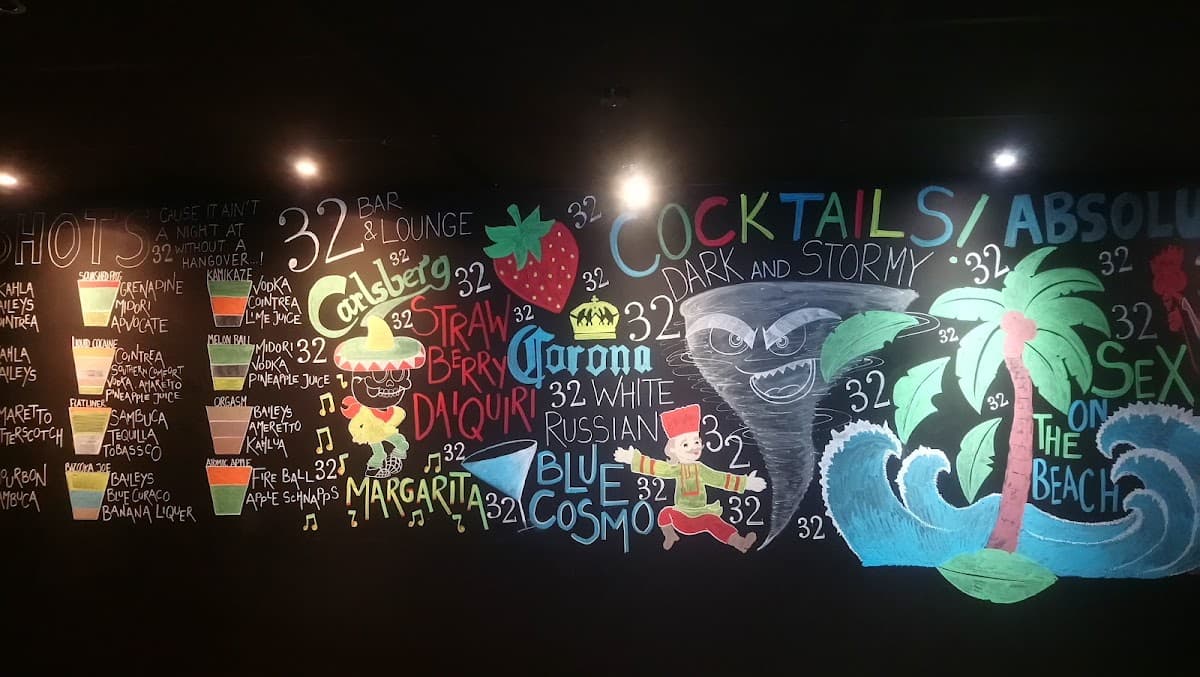 SHOTS
CAUSE IT AIN'T
A NIGHT AT
32 WITHOUT A
HANGOVER...!
KAHLA
AILEYS
OINTREA
AHLA
AILEYS
MARETTO
TTERSCOTCH
OURBON
AMBUCA
GRENADINE
MIDORI
ADVOCATE
LIQUID COCAINE
COINTREA
SOUTHERN COMFORT
VODKA, AMARETTO
PINEAPPLE JUICE
FLATLINER
SAMBUCA
TEQUILLA
TOBASSCO
BAZOOKA JOE
BAILEYS
BLUE CURACO
BANANA LIQUER
KAMIKAZE
VODKA
COINTREA
LIME JUICE
MELON BALL
MIDORI
VODKA
PINEAPPLE JUICE
ORGASM
BAILEYS
AMERETTO
KAHLUA
ATOMIC APPLE
FIRE BALL
APPLE SCHNAPPS
32
32
32 BAR
& LOUNGE
32
Carlsberg
32
32
STRAW
BERRY
DAIQUIRI
32
MARGARITA
32
32
32
32
Corona
32
32 WHITE
RUSSIAN
32
BLUE
COSMO
32
32
32
COCKTAILS!
DARK AND STORMY
32
32
32
32
32
ABSOLU
32
32
SEX
ON
THE
BEACH